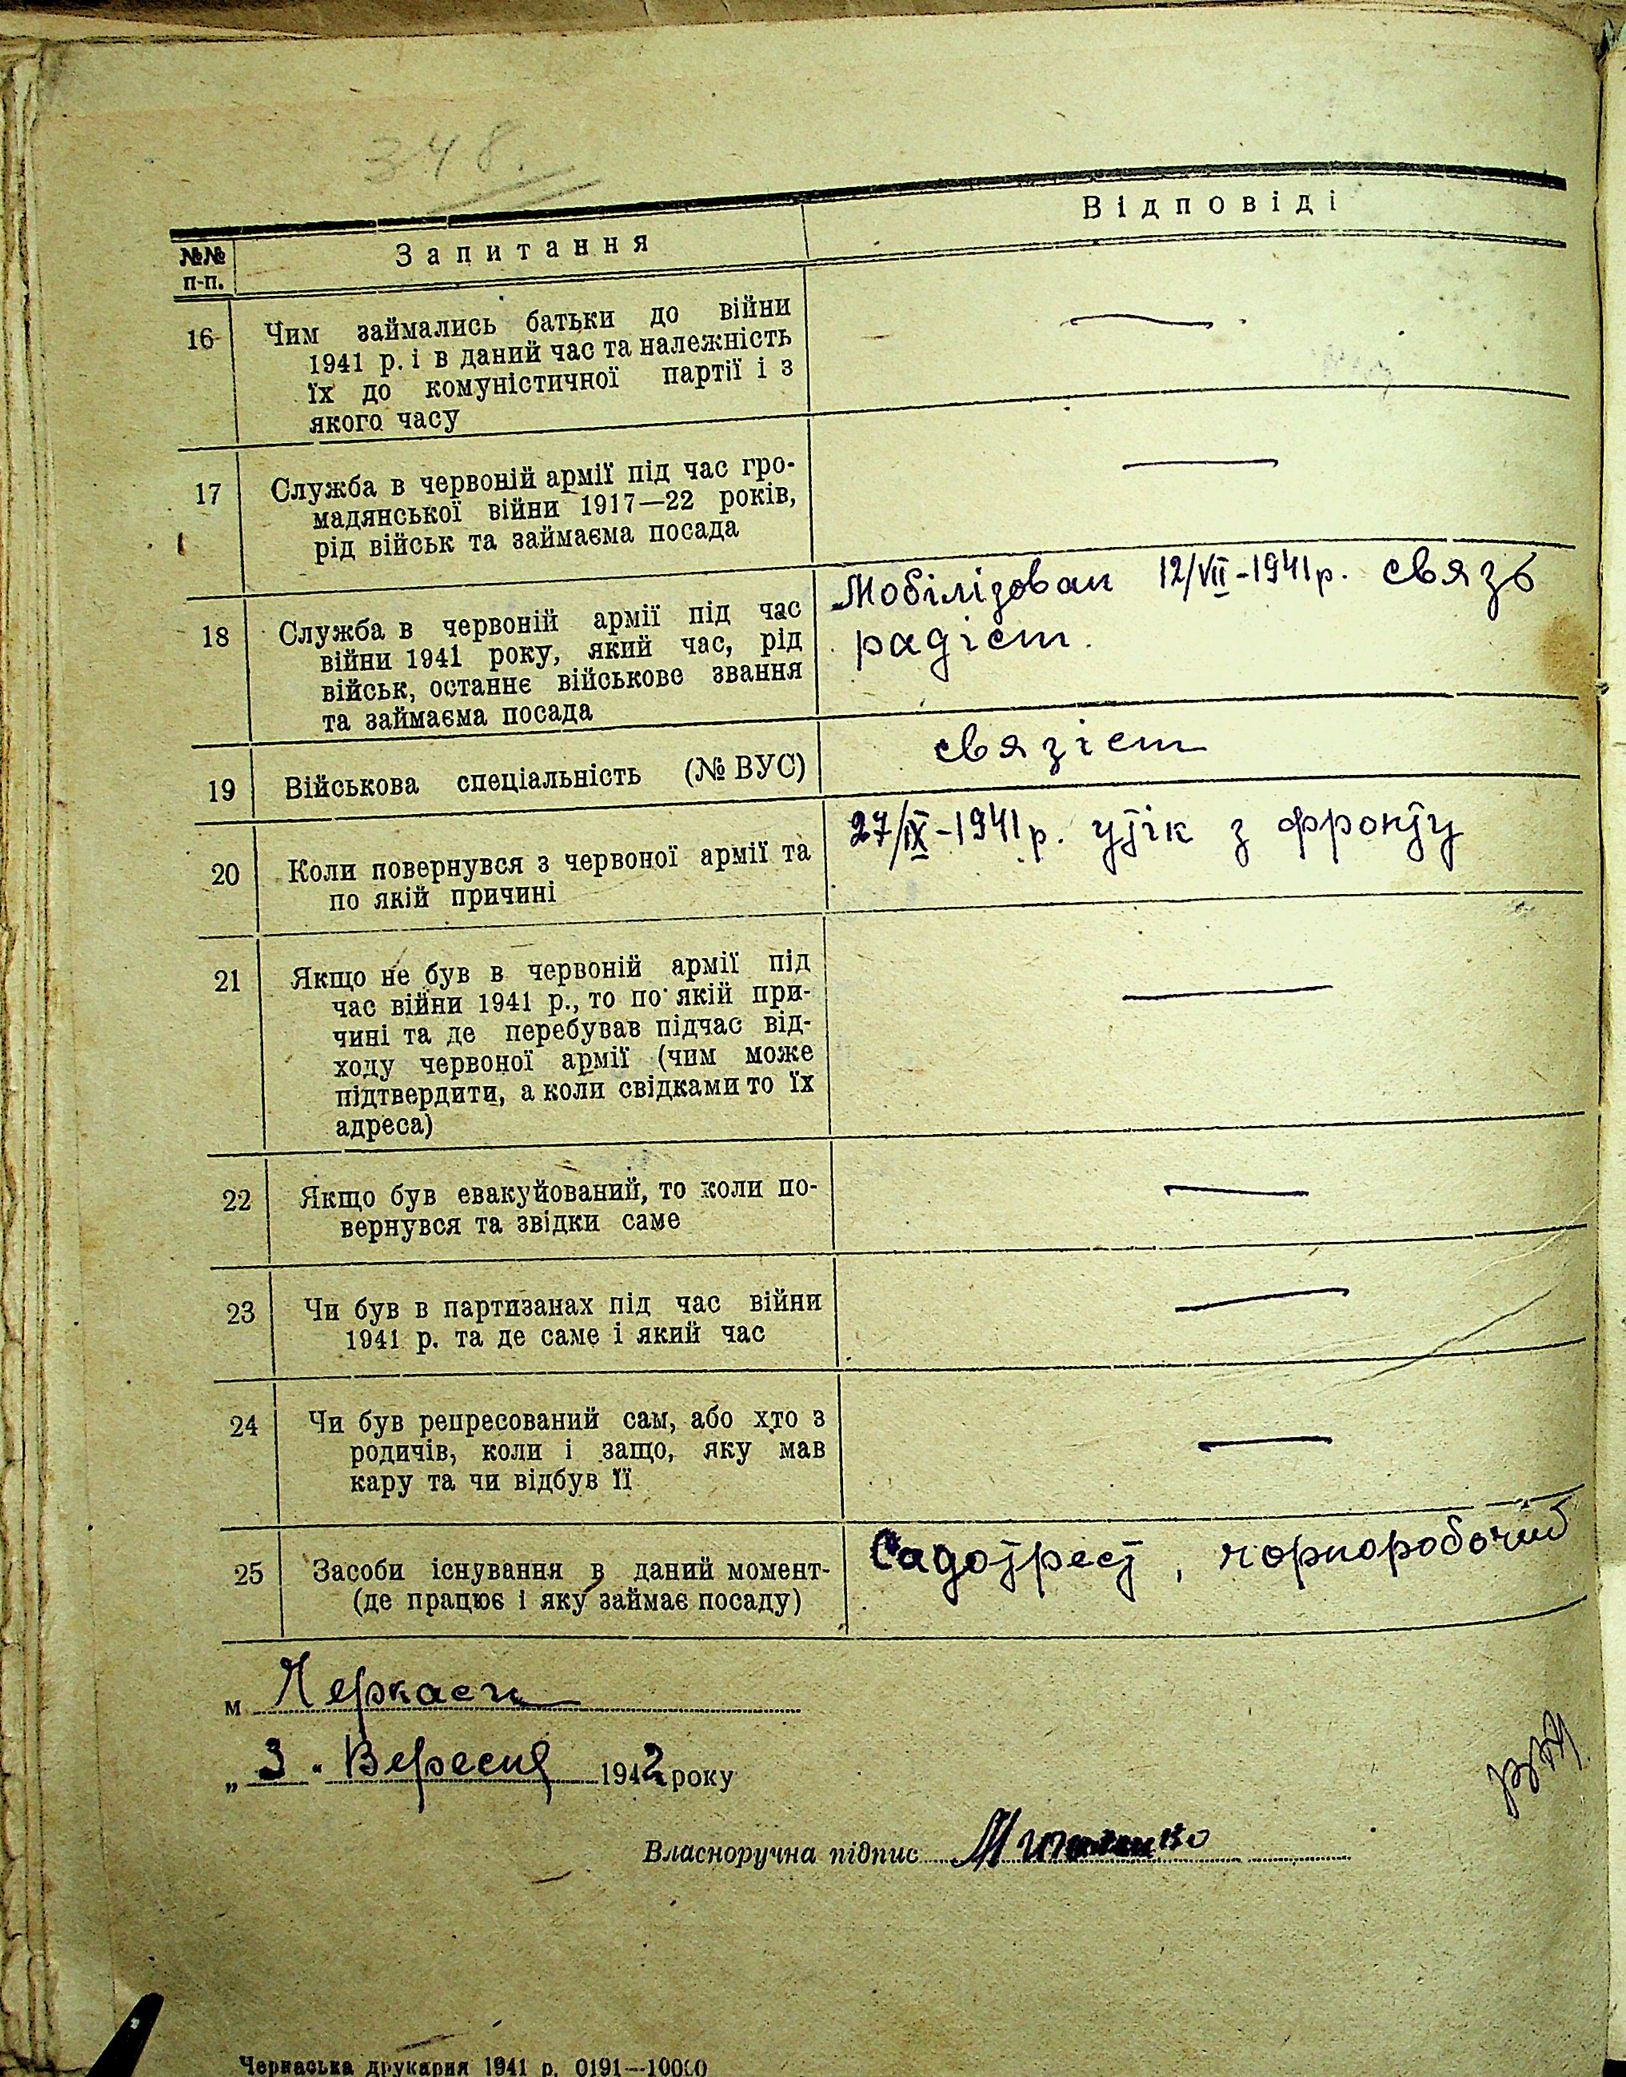 348.
№№ п-п. Запитання Відповіді
16 Чим займались батьки до війни
1941 р. і в даний час та належність
їх до комуністичної партії і з
якого часу —
17 Служба в червоній армії під час гро-
мадянської війни 1917—22 років,
рід військ та займаєма посада —
18 Служба в червоній армії під час
війни 1941 року, який час, рід
військ, останнє військове звання
та займаєма посада
Мобілізован 12/VII-1941р. связь
радіст.
19 Військова спеціальність (№ ВУС) связіст
20 Коли повернувся з червоної армії та
по якій причині
27/IX-1941р. утік з фронту
21 Якщо не був в червоній армії під
час війни 1941 р., то по якій при-
чині та де перебував підчас від-
ходу червоної армії (чим може
підтвердити, а коли свідками то їх
адреса) —
22 Якщо був евакуйований, то коли по-
вернувся та звідки саме —
23 Чи був в партизанах під час війни
1941 р. та де саме і який час —
24 Чи був репресований сам, або хто з
родичів, коли і защо, яку мав
кару та чи відбув її —
25 Засоби існування в даний момент-
(де працює і яку займає посаду)
Садотрест, чорноробочий
м Черкаси
„3" Вересня 1942 року
Власноручна підпис
Черкаська друкарня 1941 р. 0191—10000